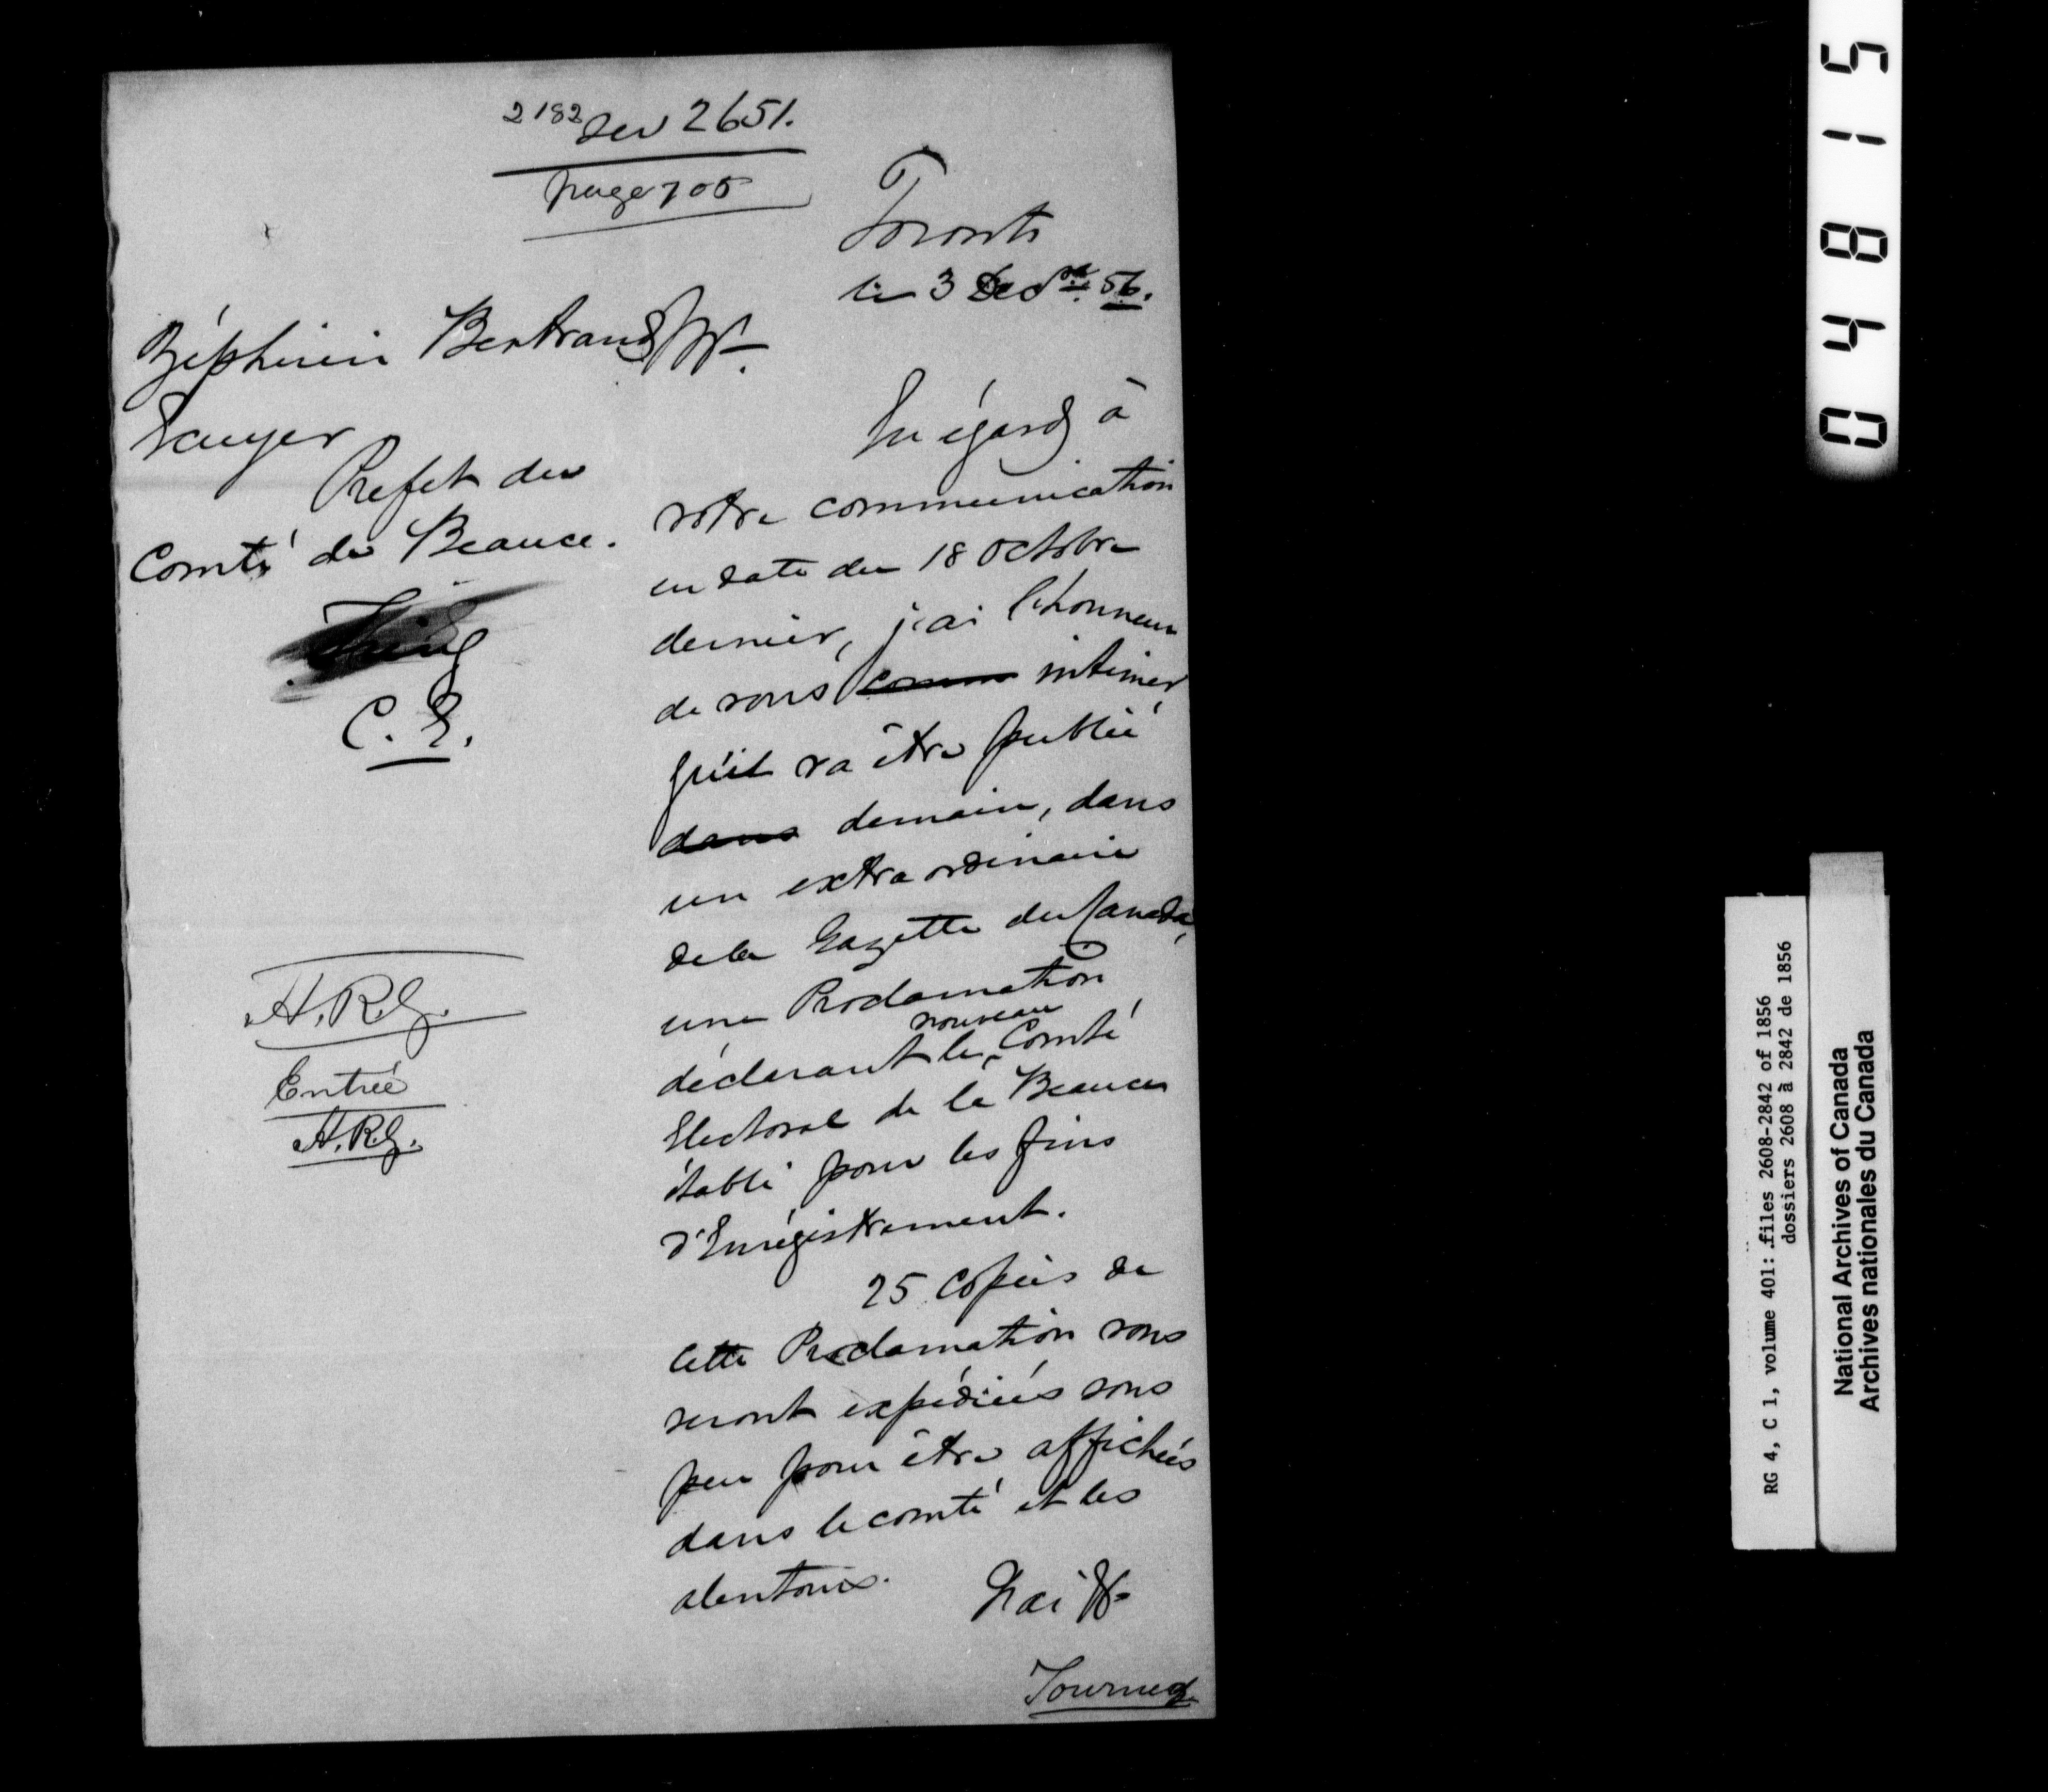 2182 sur 2651.
page 705
Toronto
le 3 Decre 56.
Zéphirin Bertrand
Ecuyer
Préfet du
Comté de Beauce.
C. E.
H.R.G.
Entrée
H.R.G.
En égard à
votre communication
en date du 18 Octobre
dernier, j'ai l'honneur
de vous comm intimer
qu'il va être publié
dans demain, dans
un extraordinaire
de la Gazette du Canada,
une Proclamation
déclarant le nouveau Comté
Electoral de la Beauce
établi pour les fins
d'Enrégistrement.
25 copies de
cette Proclamation vous
seront expédiées sous
peu pour être affichées
dans le comté et les
alentours.
J'ai &c
Tournez
04815
RG 4, C 1, volume 401: files 2608-2842 of 1856
dossiers 2608 à 2842 de 1856
National Archives of Canada
Archives nationales du Canada